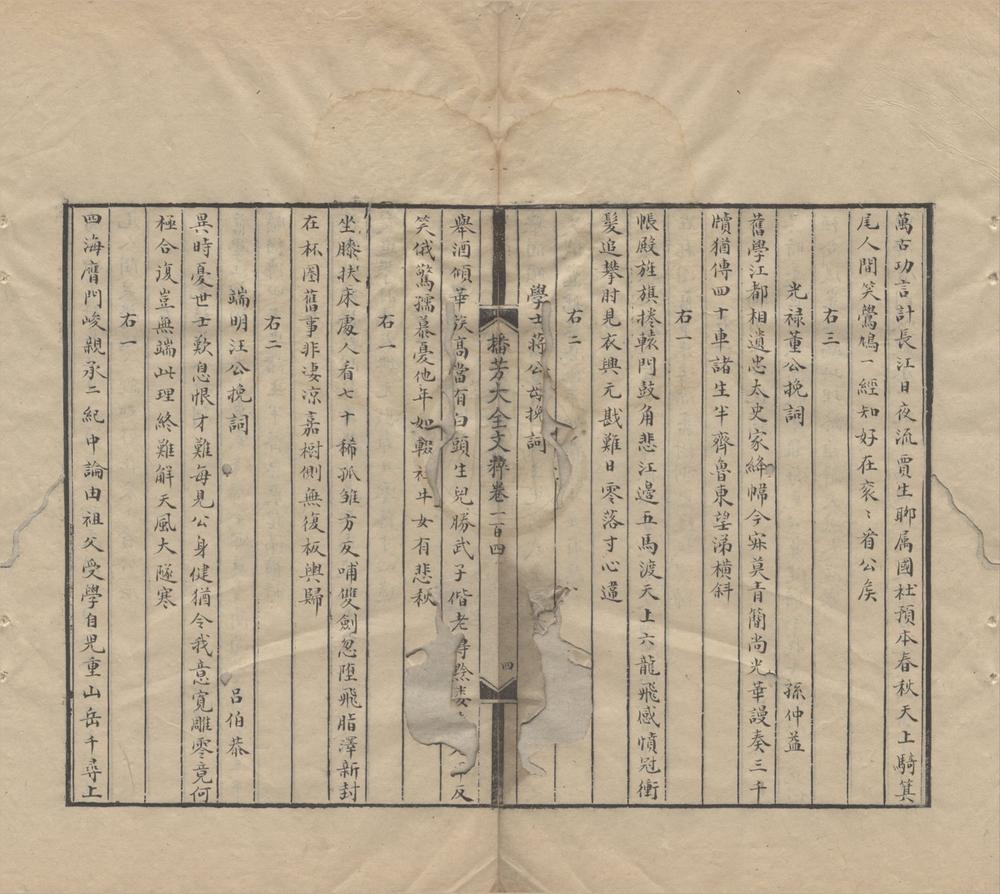 萬古功言計長江日夜流賈生聊属國杜預本春秋天上騎箕
尾人間笑鷽鳩一經知好在衮衮省公矣
右三
光禄董公挽詞 孫仲益
舊學江都相遺忠太史家絳幃今寂莫青簡尚光華謾奏三千
牘猶傳四十車諸生半齊魯東望涕横斜
右一
帳殿旌旗捲轅門鼓角悲江邊五馬渡天上六龍飛感憤冠衝
髮追攀肘見衣興元戡難日零落寸心違
右二
學士蔣公母挽詞
播芳大全文粹卷一百四
四
舉酒傾華族髙當有白頭生兒勝武子偕老得黔婁反
笑俄驚孺慕憂他年如軺女有悲秋
右一
坐膝扶床處人看七十稀孤雏方反哺雙劍忽墮飛脂澤新封
在杯圈舊事非凄凉嘉樹側無復板輿歸
右二
端明汪公挽詞 吕伯恭
異時憂世士歎息恨才難每見公身健猶令我意寛雕零竟何
極合復豈無端此理終難解天風大隧寒
右一
四海膺門峻親承二紀中論由祖父受學自児童山岳千尋上